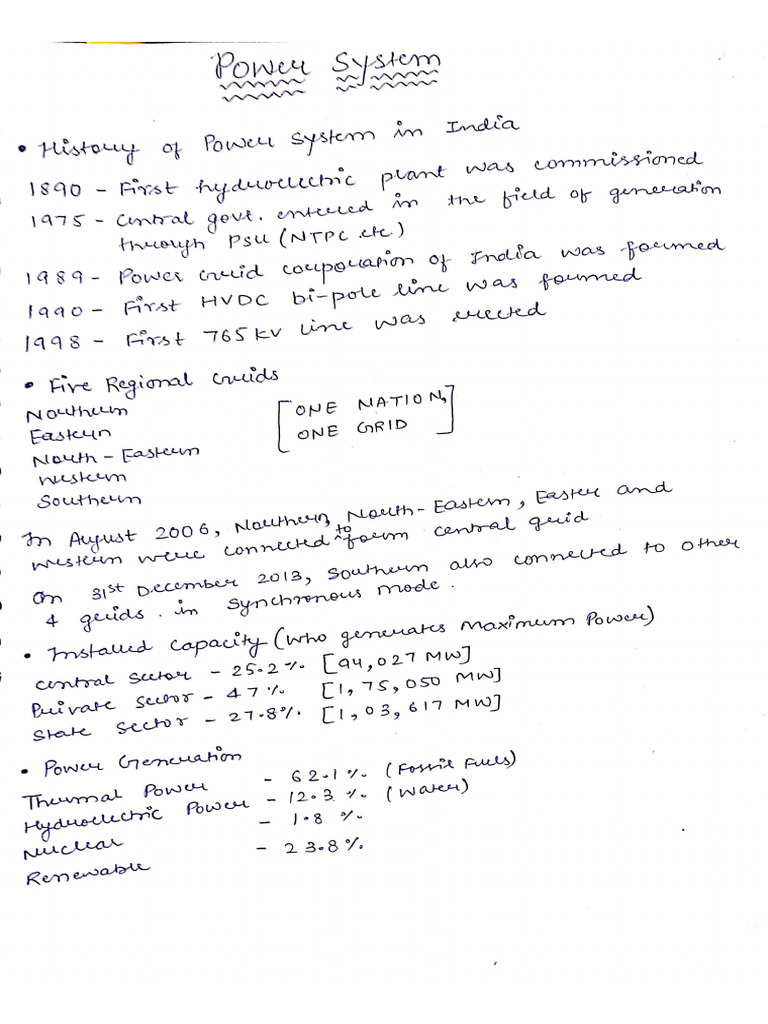 Power System
• History of Power System in India
1890 - First hydroelectric plant was commissioned
1975 - Central govt. entered in the field of generation
through PSU (NTPC etc.)
1989 - Power Grid corporation of India was formed
1990 - First HVDC bi-pole line was formed
1998 - First 765 kV line was erected
• Five Regional Grids
Northern
Eastern
North - Eastern
Western
Southern
[ONE NATION,
ONE GRID]
In August 2006, Northern, North-Eastern, Easter and
western were connected to form central grid
On 31st December 2013, Southern also connected to other
4 grids. in synchronous mode.
• Installed Capacity (Who generates Maximum Power)
Central Sector - 25.2%. [94,027 MW]
Private Sector - 47%. [1,75,050 MW]
State Sector - 27.8%. [1,03,617 MW]
• Power Generation
Thermal Power - 62.1%. (Fossil Fuels)
Hydroelectric Power - 12.3%. (Water)
Nuclear - 1.8%.
Renewable - 23.8%.